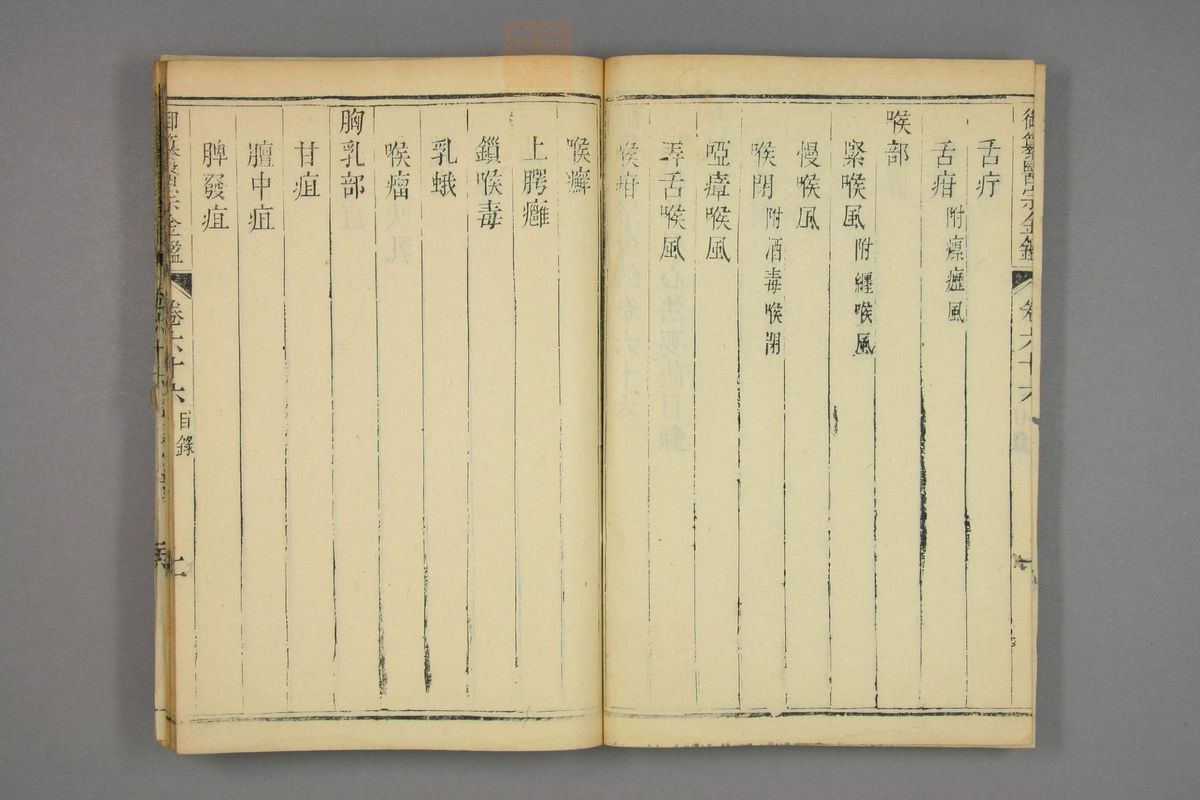 御纂醫宗金鑑 卷六十六
舌疔
舌疳 附瘰癧風
喉部
緊喉風 附纏喉風
慢喉風
喉閉 附酒毒喉閉
啞瘴喉風
弄舌喉風
喉疳
喉癬
上腭癰
鎖喉毒
乳蛾
喉瘤
胸乳部
甘疽
膻中疽
脾發疽
御纂醫宗金鑑 卷六十六 目錄